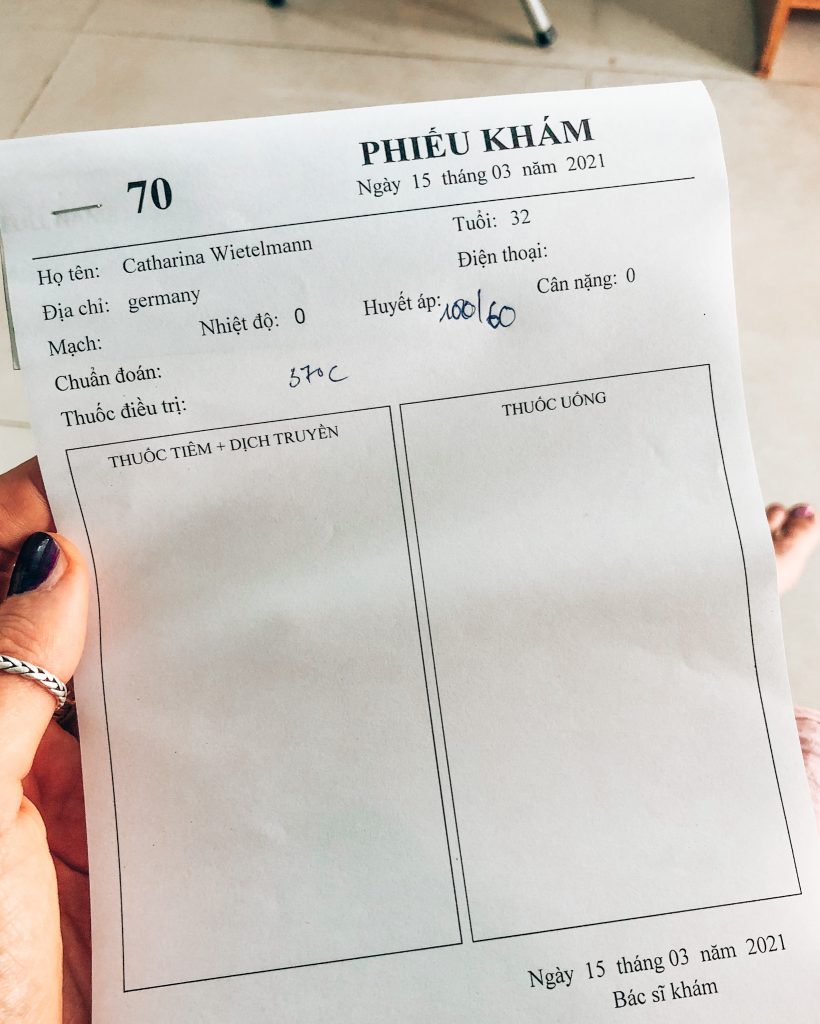 70
PHIẾU KHÁM
Ngày 15 tháng 03 năm 2021
Họ tên: Catharina Wietelmann Tuổi: 32
Địa chỉ: germany Điện thoại:
Mạch: Nhiệt độ: 0 Huyết áp: 100/60 Cân nặng: 0
Chuẩn đoán: 37°C
Thuốc điều trị:
THUỐC TIÊM + DỊCH TRUYỀN
THUỐC UỐNG
Ngày 15 tháng 03 năm 2021
Bác sĩ khám